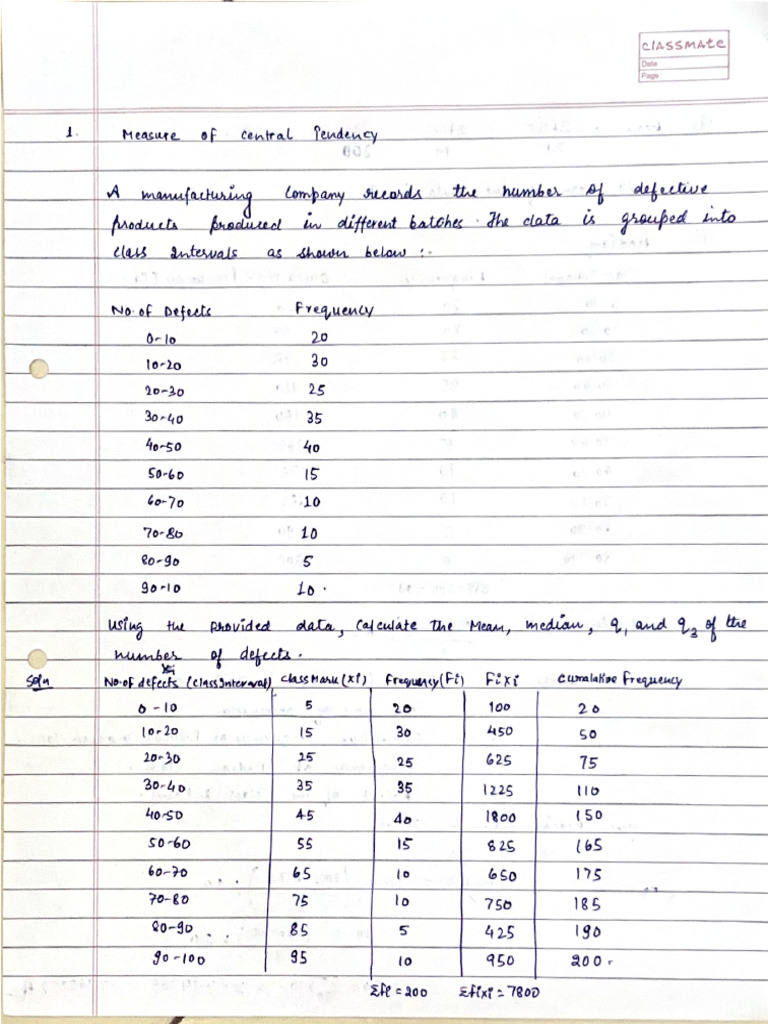 classmate
Date
Page
1. Measure of central Tendency
A manufacturing company records the number of defective
products produced in different batches. The data is grouped into
class intervals as shown below :-
No. of Defects Frequency
0-10 20
10-20 30
20-30 25
30-40 35
40-50 40
50-60 15
60-70 10
70-80 10
80-90 5
90-10 10.
Using the provided data, calculate the Mean, median, q1 and q3 of the
number of defects.
Soln No. of defects (Class Interval) Class Mark (xi) Frequency (Fi) Fixi Cumalative Frequency
0-10 5 20 100 20
10-20 15 30 450 50
20-30 25 25 625 75
30-40 35 35 1225 110
40-50 45 40 1800 150
50-60 55 15 825 165
60-70 65 10 650 175
70-80 75 10 750 185
80-90 85 5 425 190
90-100 95 10 950 200.
Σfi = 200 Σfixi = 7800